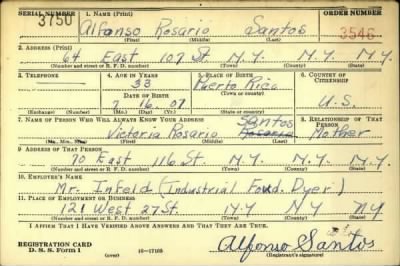 SERIAL NUMBER 1. NAME (Print) ORDER NUMBER
3750 Alfonso Rosario Santos 3546
(First) (Middle) (Last)
2. ADDRESS (Print)
64 East 107 St. N.Y. N.Y. N.Y.
(Number and street or R. F. D. number) (Town) (County) (State)
3. TELEPHONE 4. AGE IN YEARS 5. PLACE OF BIRTH 6. COUNTRY OF CITIZENSHIP
33 Puerto Rico
DATE OF BIRTH (Town or county)
7 16 07 U.S.
(Exchange) (Number) (Mo.) (Day) (Yr.) (State or country)
7. NAME OF PERSON WHO WILL ALWAYS KNOW YOUR ADDRESS 8. RELATIONSHIP OF THAT PERSON
Santos
Victoria Rosario Rosario Mother
(Mr., Mrs., Miss) (First) (Middle) (Last)
9. ADDRESS OF THAT PERSON
70 East 116 St. N.Y. N.Y. N.Y.
(Number and street or R. F. D. number) (Town) (County) (State)
10. EMPLOYER'S NAME
Mr. Infeld (Industrial Foud. Dyer)
11. PLACE OF EMPLOYMENT OR BUSINESS
121 West 27 St. N.Y N.Y N.Y
(Number and street or R. F. D. number) (Town) (County) (State)
I AFFIRM THAT I HAVE VERIFIED ABOVE ANSWERS AND THAT THEY ARE TRUE.
REGISTRATION CARD
D. S. S. Form 1 (over) 16—17105 Alfonso Santos
(Registrant's signature)